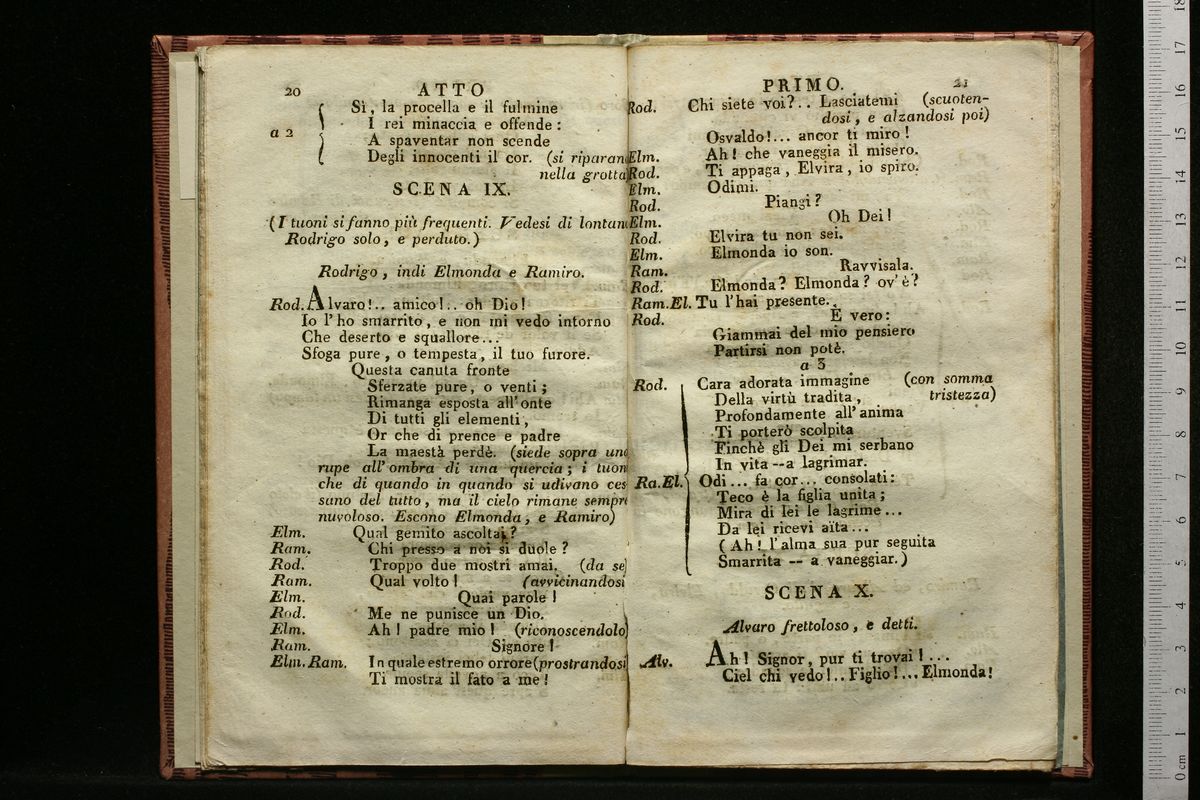 20 ATTO
Sì, la procella e il fulmine
a 2 I rei minaccia e offende:
A spaventar non scende
Degli innocenti il cor. (si riparan
nella grotta
SCENA IX.
(I tuoni si fanno più frequenti. Vedesi di lontan
Rodrigo solo, e perduto.)
Rodrigo, indi Elmonda e Ramiro.
Rod. Alvaro!.. amico!.. oh Dio!
Io l'ho smarrito, e non mi vedo intorno
Che deserto e squallore...
Sfoga pure, o tempesta, il tuo furore.
Questa canuta fronte
Sferzate pure, o venti;
Rimanga esposta all'onte
Di tutti gli elementi,
Or che di prence e padre
La maestà perdè. (siede sopra una
rupe all'ombra di una quercia; i tuon
che di quando in quando si udivano ces
sano del tutto, ma il cielo rimane sempre
nuvoloso. Escono Elmonda, e Ramiro)
Elm. Qual gemito ascoltai?
Ram. Chi presso a noi si duole?
Rod. Troppo due mostri amai. (da se)
Ram. Qual volto! (avvicinandosi
Elm. Quai parole!
Rod. Me ne punisce un Dio.
Elm. Ah! padre mio! (riconoscendolo)
Ram. Signore!
Elm. Ram. In quale estremo orrore (prostrandosi
Ti mostra il fato a me!
PRIMO. 21
Rod. Chi siete voi?.. Lasciatemi (scuoten-
dosi, e alzandosi poi)
Osvaldo!... ancor ti miro!
Elm. Ah! che vaneggia il misero.
Rod. Ti appaga, Elvira, io spiro.
Elm. Odimi.
Rod. Piangi?
Elm. Oh Dei!
Rod. Elvira tu non sei.
Elm. Elmonda io son.
Ram. Ravvisala.
Rod. Elmonda? Elmonda? ov'è?
Ram. El. Tu l'hai presente.
Rod. È vero:
Giammai del mio pensiero
Partirsi non potè.
a 3
Rod. Cara adorata immagine (con somma
Della virtù tradita, tristezza)
Profondamente all'anima
Ti porterò scolpita
Finchè gli Dei mi serbano
In vita -- a lagrimar.
Ra. El. Odi... fa cor... consolati:
Teco è la figlia unita;
Mira di lei le lagrime...
Da lei ricevi aïta...
(Ah! l'alma sua pur seguita
Smarrita -- a vaneggiar.)
SCENA X.
Alvaro frettoloso, e detti.
Alv. Ah! Signor, pur ti trovai!...
Ciel chi vedo!.. Figlio!... Elmonda!
0 cm 1 2 3 4 5 6 7 8 9 10 11 12 13 14 15 16 17 18